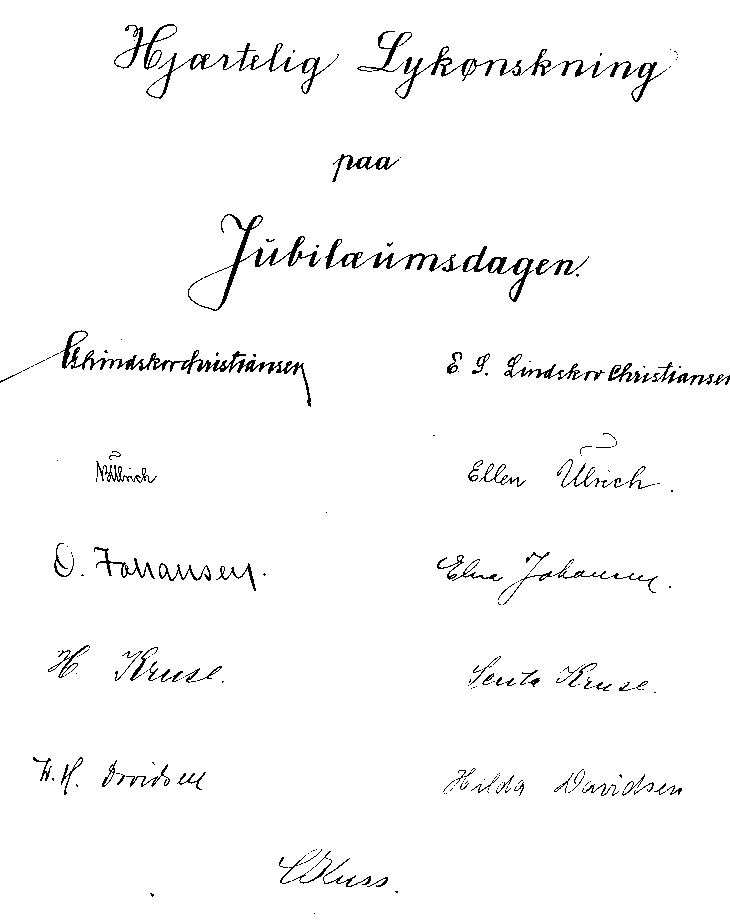 Hjærtelig Lykønskning
paa
Jubilæumsdagen.
Lindskov Christiansen E S. Lindskov Christiansen
Ulrich Ellen Ulrich.
O. Johansen. Elna Johansen.
H Kruse. Senta Kruse.
H. Davidsen Hilda Davidsen